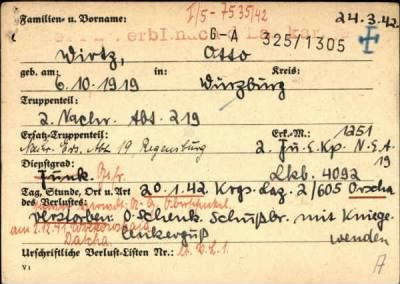 Familien- u. Vorname: I/5-7535/42 24.3.42.
verbl. nach
G-A 325/1305
Wirtz, Otto
geb. am: in: Kreis:
6.10.1919 Würzburg
Truppenteil:
2. Nachr. Abt. 219
Ersatz-Truppenteil: Erk.-M.: 1251
Nachr. Ers. Abt 19, Regensburg 2. Fu.E.Kp. N.E.A. 19
Dienstgrad:
Funk. Gefr. Lkb. 4092
Tag, Stunde, Ort u. Art 20.1.42 Krgs. Laz. 2/605 Orscha
des Verlustes:
verstorben O.Schenk. Schußbr. mit Kniege-
am 2.12.41 Ankerguß wenden
Urschriftliche Verlust-Listen Nr.:
V1
A